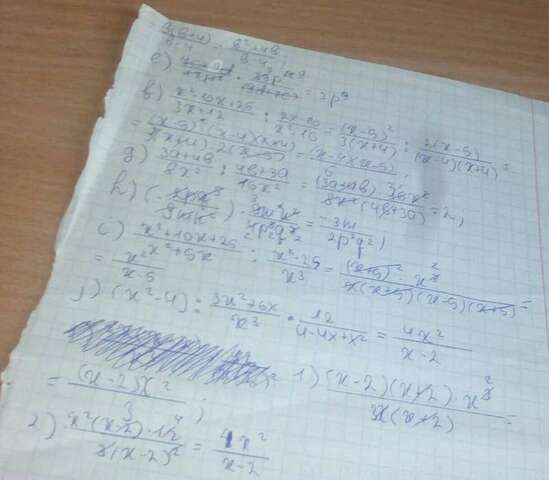 = 2p⁹
b) (x²-10x+25)/(3x+12) : (2x-10)/(x²-16) = (x-5)²/(3(x+4)) : (2(x-5))/((x-4)(x+4)) =
= ((x-5)²(x-4)(x+4))/(3(x+4) 2(x-5)) =
g) (3a+4b)/(8x²) : (4b+3a)/(16x²) = ((3a+4b) 16x²)/(8x²(4b+3a)) = 2;
h) = -3m/(2p²q²);
i) (x²+10x+25)/(x²+5x) : (x²-25)/x³ = ((x+5)² · x³)/(x(x+5)(x-5)(x+5)) =
= x²/(x-5)
j) (x²-4) : (3x²+6x)/x³ · 12/(4-4x+x²) = 4x²/(x-2)
1) ((x-2)(x+2) · x³)/(3x(x+2)) =
= ((x-2)x²)/3;
2) (x²(x-2) · 12)/(3(x-2)²) = 4x²/(x-2)